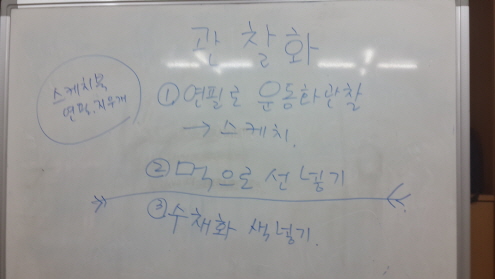 관찰화
스케치북
연필.지우개
①연필로 운동화관찰
→스케치.
②먹으로 선넣기
③수채화 색넣기.